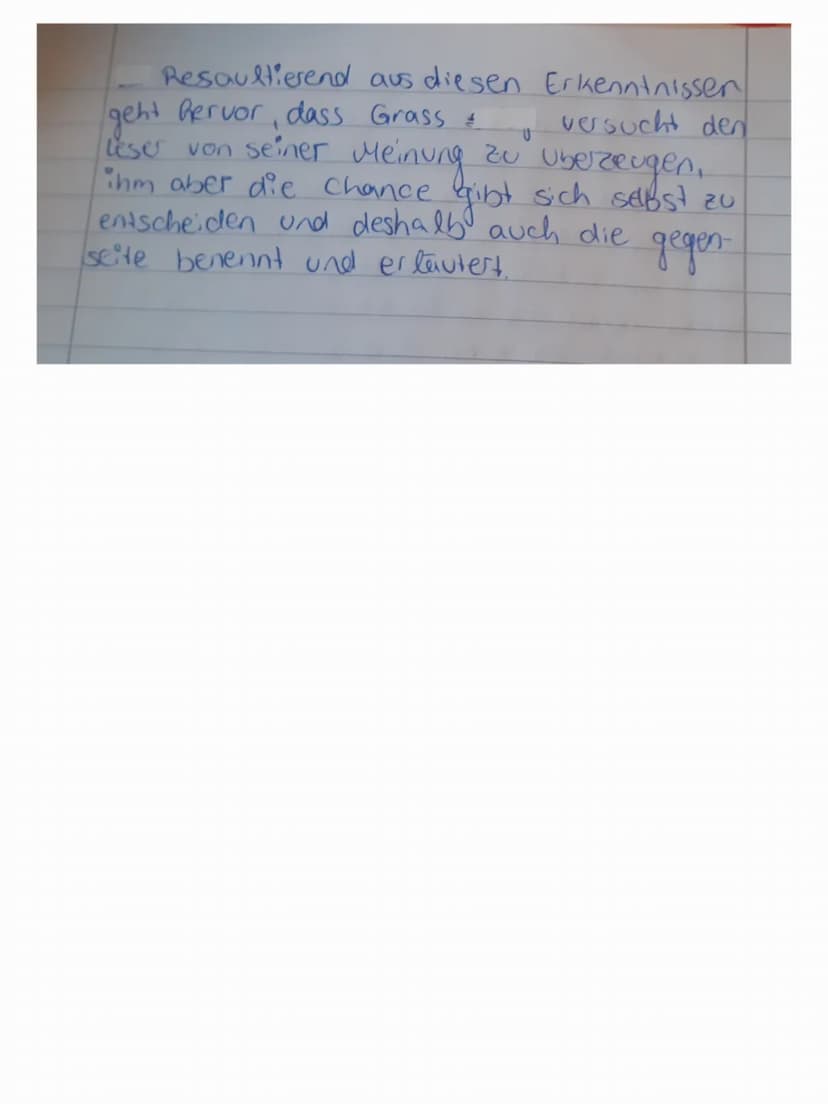 Resaultierend aus diesen Erkenntnissen
geht hervor, dass Grass versucht den
Leser von seiner Meinung zu überzeugen,
ihm aber die Chance gibt sich selbst zu
entscheiden und deshalb auch die gegen-
seite benennt und erläutert.